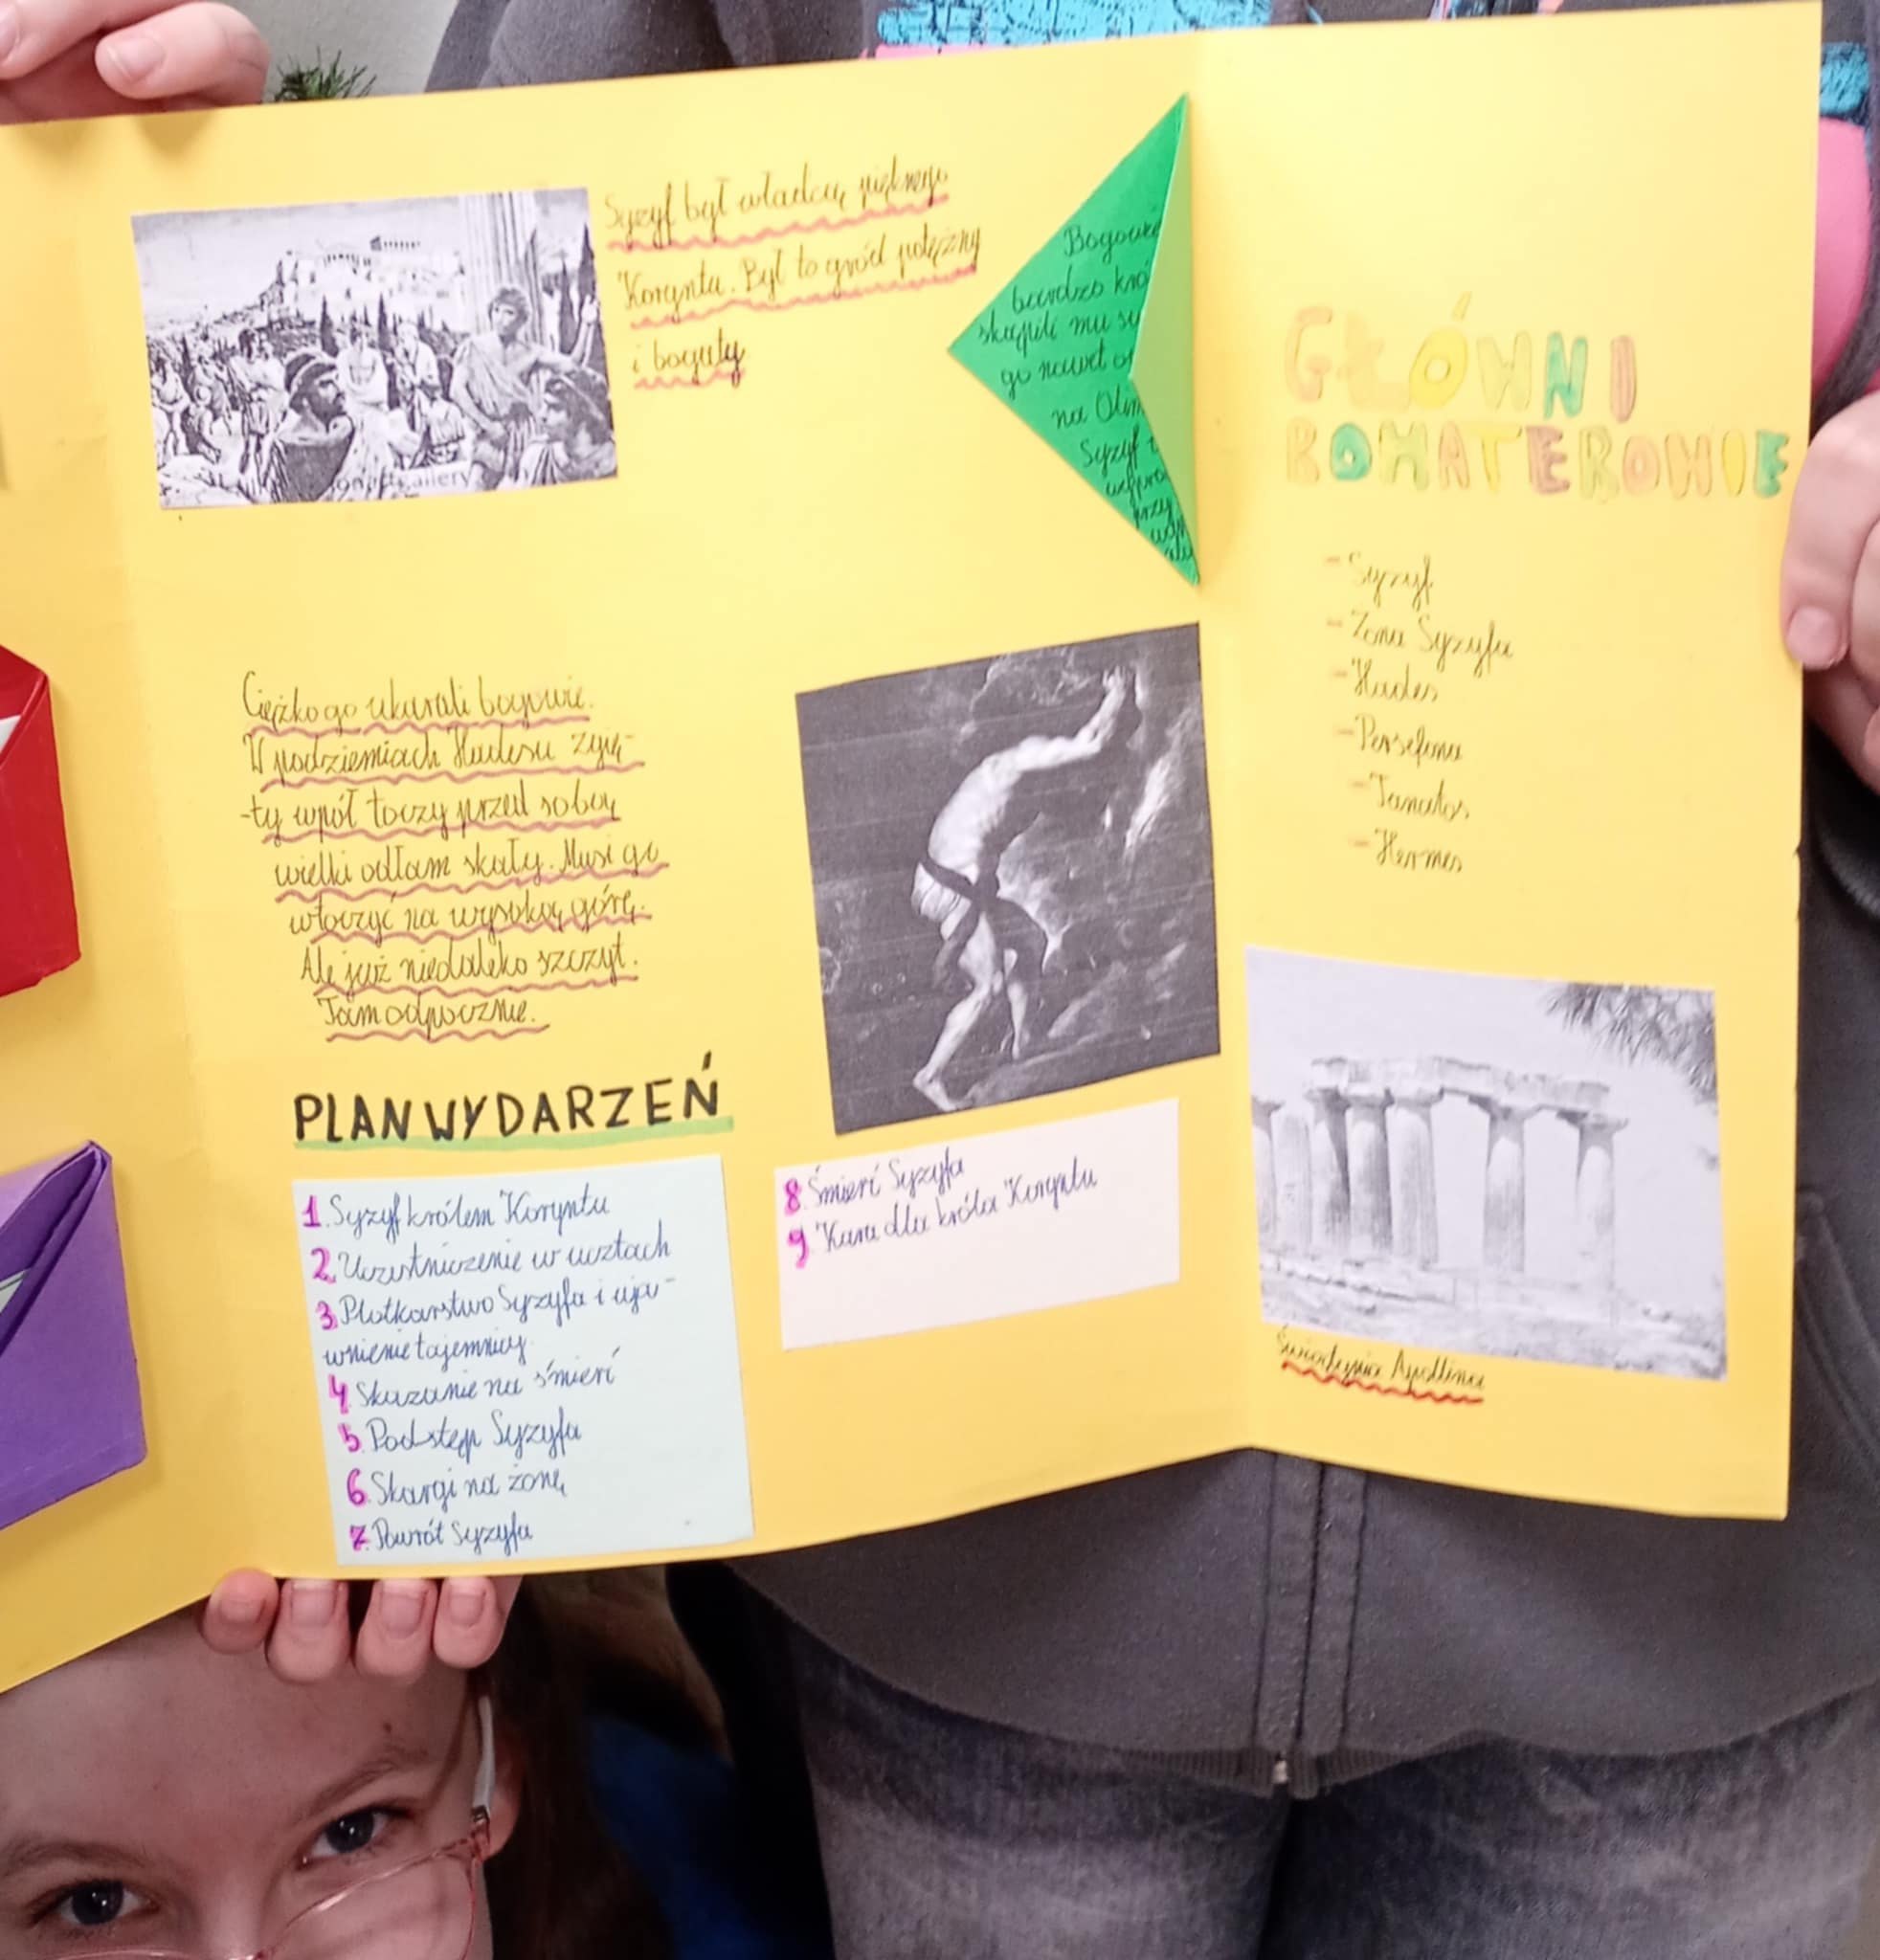 Syzyf był władcą pięknego
Koryntu. Był to gród potężny
i bogaty
Bogowie
bardzo
skąpili mu
go nawet
na
Syzyf
przy
Ciężko go ukarali bogowie.
W podziemiach Hadesu zgię-
-ty wpół toczy przed sobą
wielki odłam skały. Musi go
wtoczyć na wysoką górę.
Ale już niedaleko szczyt.
Tam odpocznie.
PLAN WYDARZEŃ
1. Syzyf królem Koryntu
2. Uczestniczenie w ucztach
3. Plotkarstwo Syzyfa i uja-
wnienie tajemnicy
4. Skazanie na śmierć
5. Podstęp Syzyfa
6. Skargi na żonę
7. Powrót Syzyfa
8. Śmierć Syzyfa
9. Kara dla króla Koryntu
GŁÓWNI
BOHATEROWIE
- Syzyf
- Żona Syzyfa
- Hades
- Persefona
- Tanatos
- Hermes
Świątynia Apollina